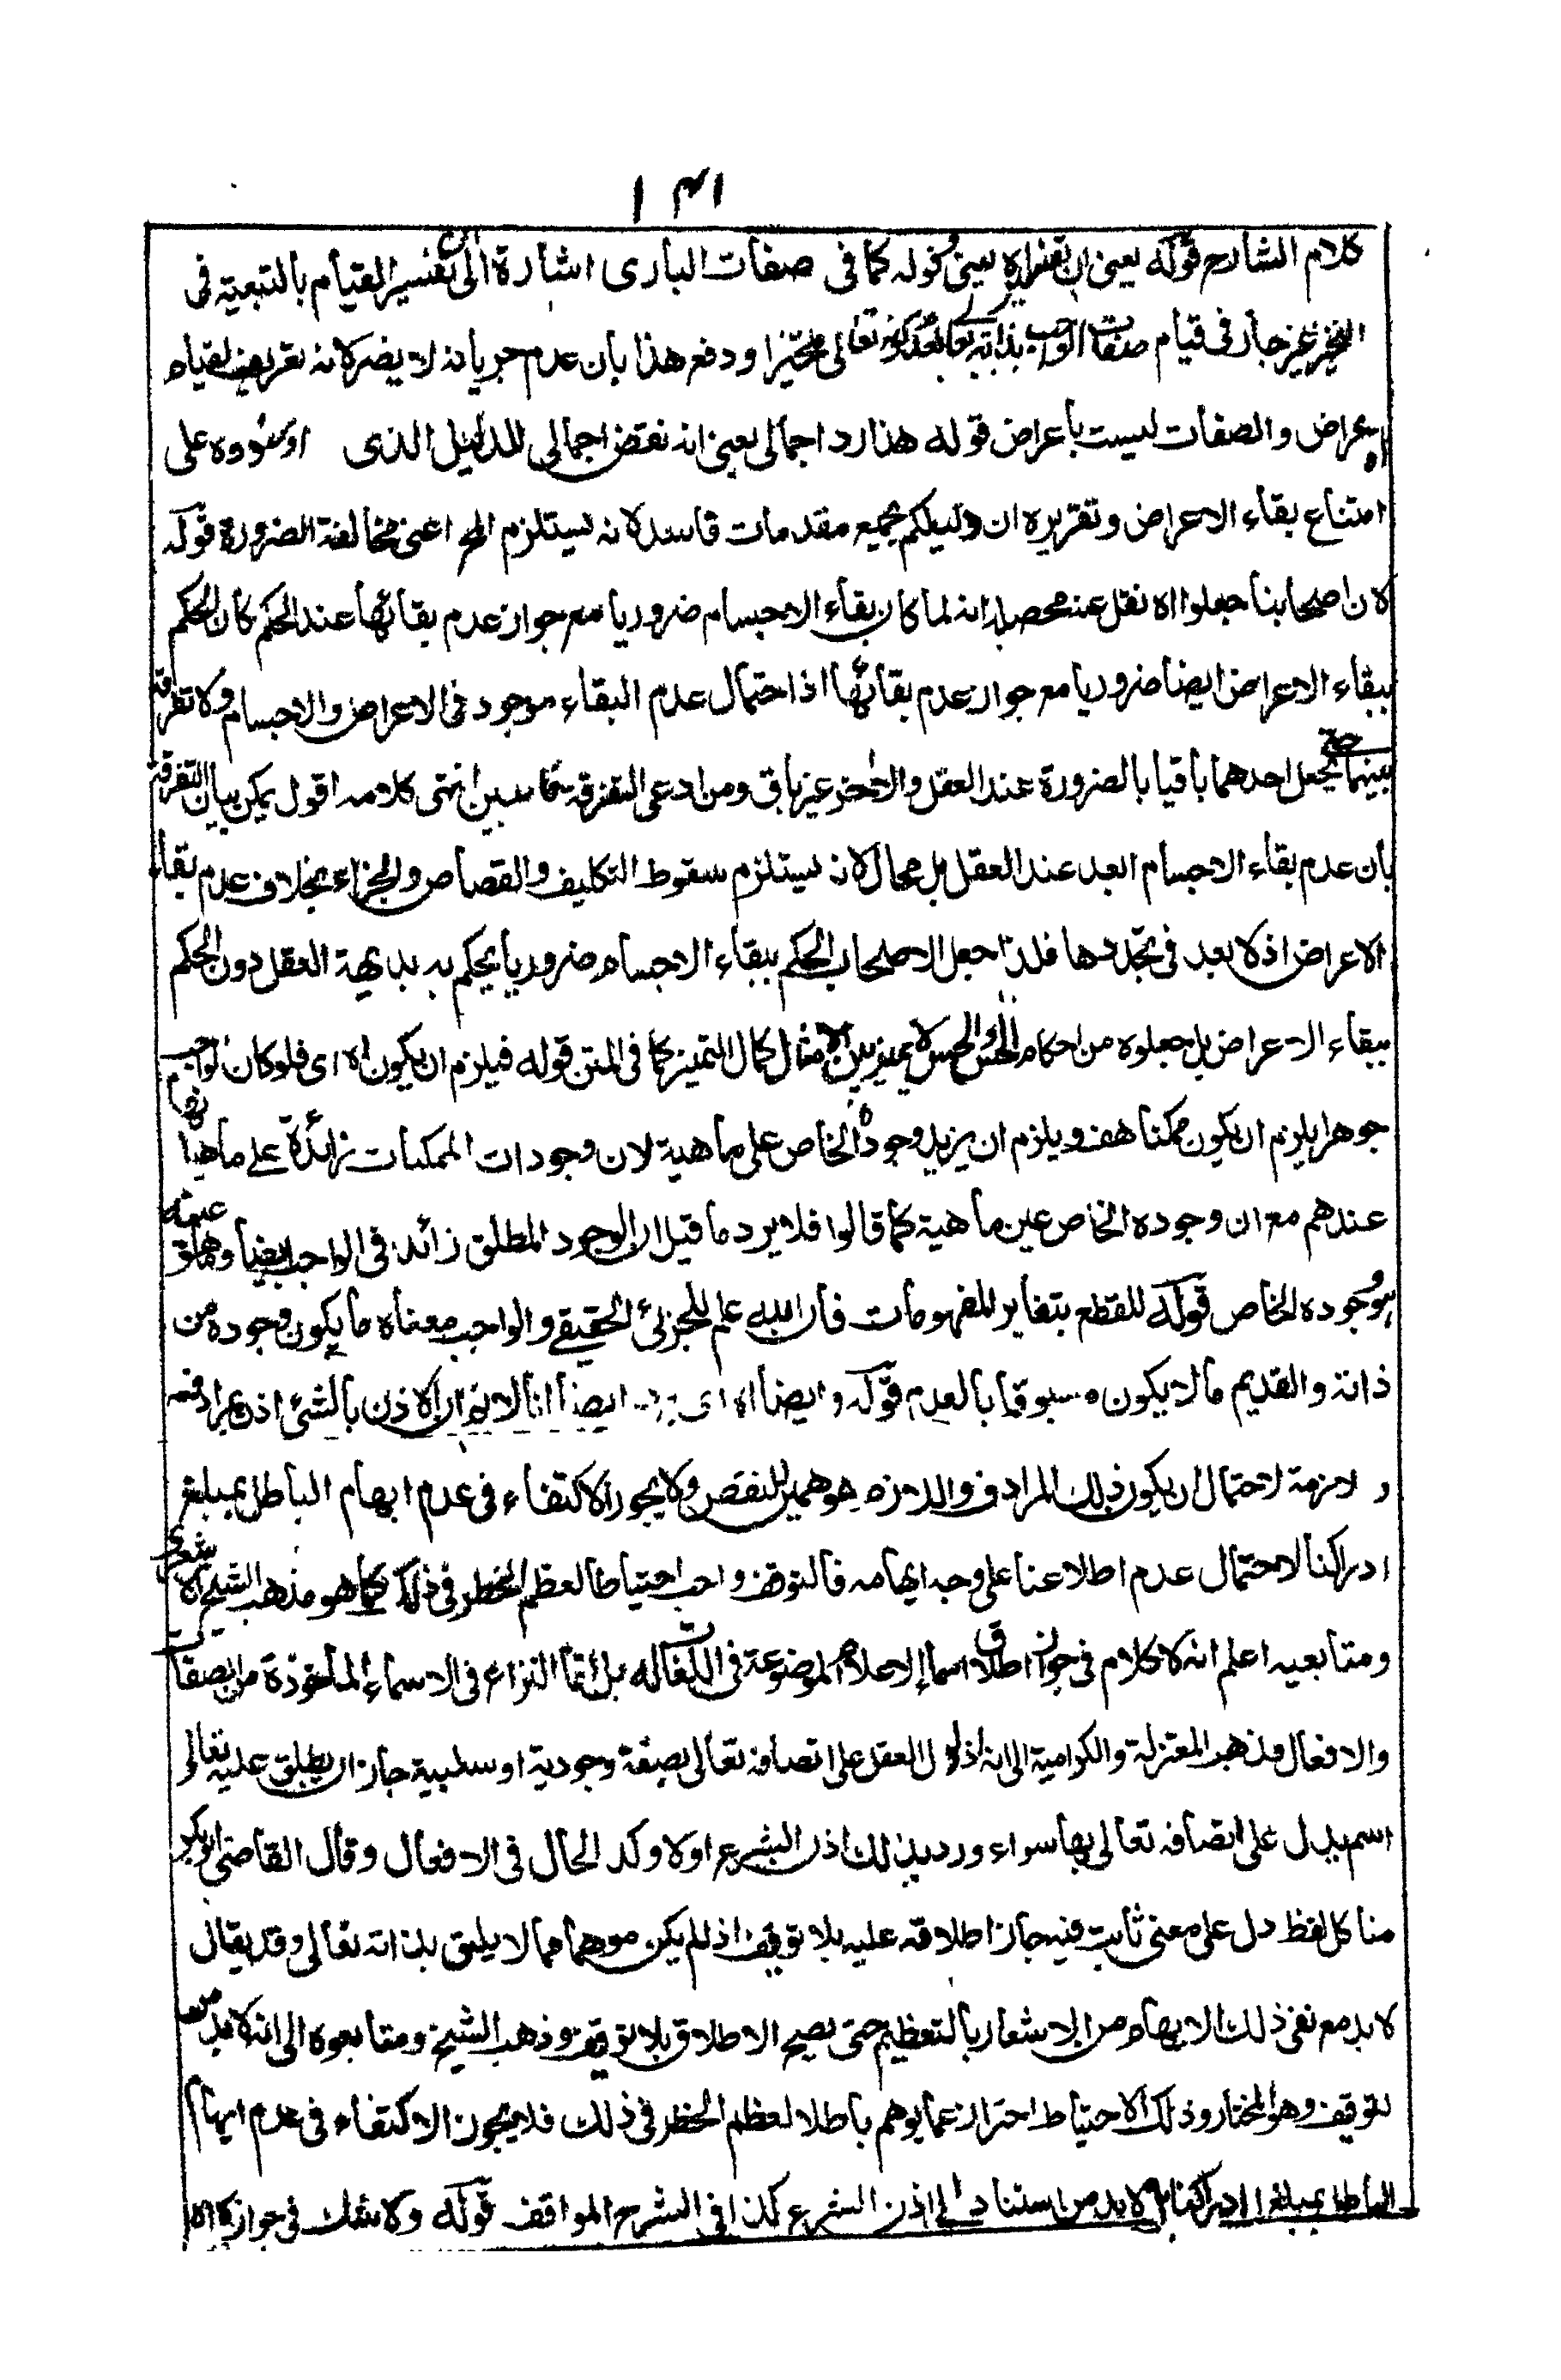 ١٣١
كلام الشارح قوله يعنى ان تفسيره اه يعنى قوله كما فى صفات البارى اشارة الى ان تفسير القيام بالتبعية فى
التحيز غير جار فى قيام صفات الواجب بذاته تعالى لعدم كونه تعالى متحيزا ودفع هذا بان عدم جريانه لا يضر لانه تعريف لقيام
الاعراض والصفات ليست باعراض قوله هذا رد اجمالى يعنى انه نقض اجمالى للدليل الذى اوردوه على
امتناع بقاء الاعراض وتقريره ان دليلكم بجميع مقدمات فاسد لانه يستلزم المح اعنى مخالفة الضرورة قوله
لان اصحابنا جعلوا اه نقل عنه محصله انه لما كان بقاء الاجسام ضروريا مع جواز عدم بقائها عند الحكم كان الحكم
ببقاء الاعراض ايضا ضروريا مع جواز عدم بقائها اذ احتمال عدم البقاء موجود فى الاعراض والاجسام ولا تفرقة
بينهما حتى يجعل احدهما باقيا بالضرورة عند العقل والاخر غير باق ومن ادعى التفرقة انتهى كلامه اقول يمكن بيان التفرقة
بان عدم بقاء الاجسام ابعد عند العقل بل محال لانه يستلزم سقوط التكليف والقصاص والجزاء بخلاف عدم بقاء
الاعراض اذ لا بعد فى تجددها فلذا جعل الاصحاب الحكم ببقاء الاجسام ضروريا يحكم به بديهة العقل دون الحكم
ببقاء الاعراض بل جعلوه من احكام الحس والحس لا يميز بين الامثال كمال التميز كما فى المتن قوله فيلزم ان يكون اه اى فلو كان الواجب
جوهرا يلزم ان يكون ممكنا هف ويلزم ان يزيد وجوده الخاص على ماهية لان وجودات الممكنات زائدة على ماهياتها
عندهم مع ان وجوده الخاص عين ماهية كما قالوا فلا يرد ما قيل ان الوجود المطلق زائد فى الواجب ايضا وما هو عينه
هو وجوده الخاص قوله للقطع بتغاير المفهومات فان الله علم للجزئى الحقيقى والواجب معناه ما يكون وجوده من
ذاته والقديم ما لا يكون مسبوقا بالعدم قوله وايضا اه اى ايضا انا لا نم ان الاذن بالشئ اذن بمرادفه
و لازمة لاحتمال ان يكون ذلك المرادف واللازم موهمين للنقص ولا يجوز الاكتفاء فى عدم ايهام الباطل بمبلغ
ادراكنا لاحتمال عدم اطلاعنا على وجه ايهامه فالتوقف واجب احتياطا لعظم الخطر فى ذلك كما هو مذهب الشيخ الاشعرى
ومتابعيه اعلم انه لا كلام فى جواز اطلاق اسماء الاعلام الموضوعة فى اللغات له بل انما النزاع فى الاسماء المأخوذة من الصفات
والافعال فذهب المعتزلة والكرامية الى انه اذا دل العقل على اتصافه تعالى بصفة وجودية او سلبية جاز ان يطلق عليه تعالى
اسم يدل على اتصافه تعالى بها سواء ورد بذلك اذن الشرع اولا وكذ الحال فى الافعال وقال القاضى ابوبكر
منا كل لفظ دل على معنى ثابت فيه جاز اطلاقه عليه بلا توقيف اذ لم يكن موهما مما لا يليق بذاته تعالى وقد يقال
لابد مع نفى ذلك الايهام من الاشعار بالتعظيم حتى يصح الاطلاق بلا توقيف وذهب الشيخ ومتابعوه الى انه لابد من
لتوقيف وهو المختار وذلك الاحتياط احترازا عما يوهم باطلا لعظم الخطر فى ذلك فلا يجوز الاكتفاء فى عدم ايهام
الباطل بمبلغ ادراكنا بل لابد من استناد الى اذن الشرع كذا فى الشرح المواقف قوله ولا شك فى جواز كا اه